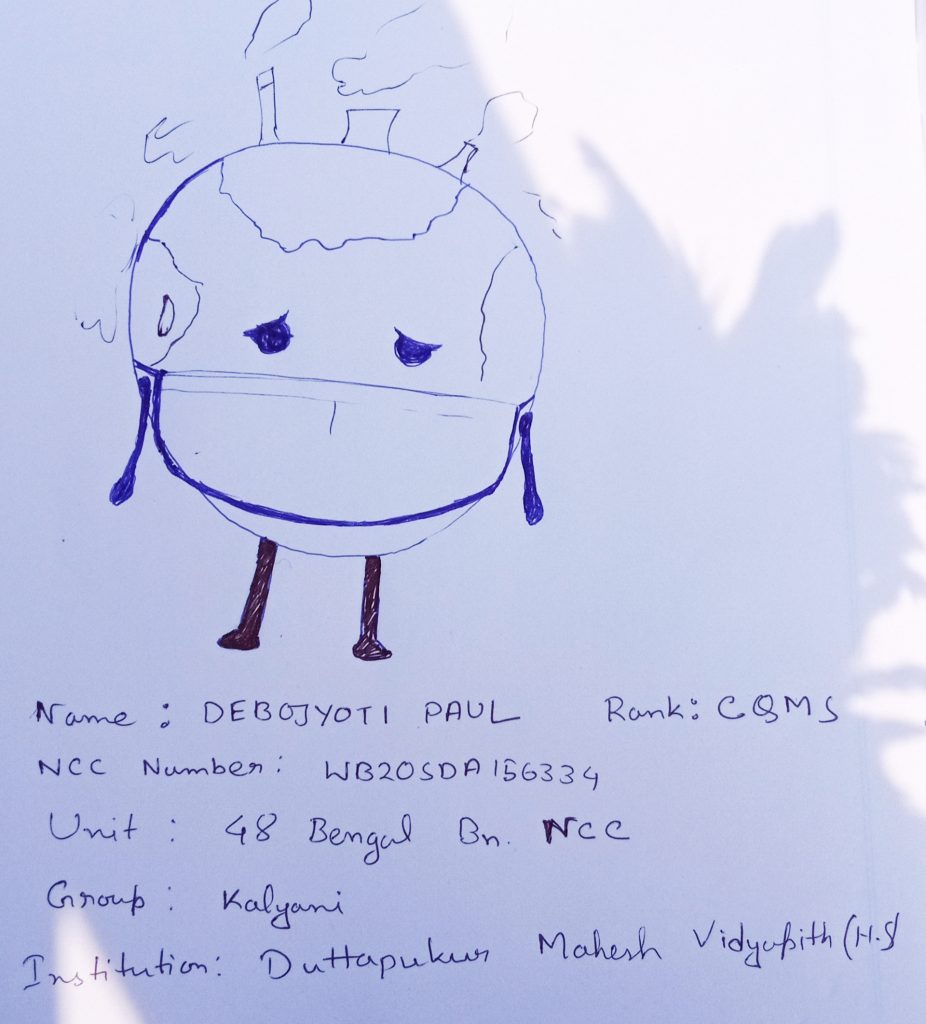 Name : DEBOJYOTI PAUL Rank: CQMS
NCC Number: WB20SDA156334
Unit : 48 Bengal Bn. NCC
Group : Kalyani
Institution: Duttapukur Mahesh Vidyapith (H.S)